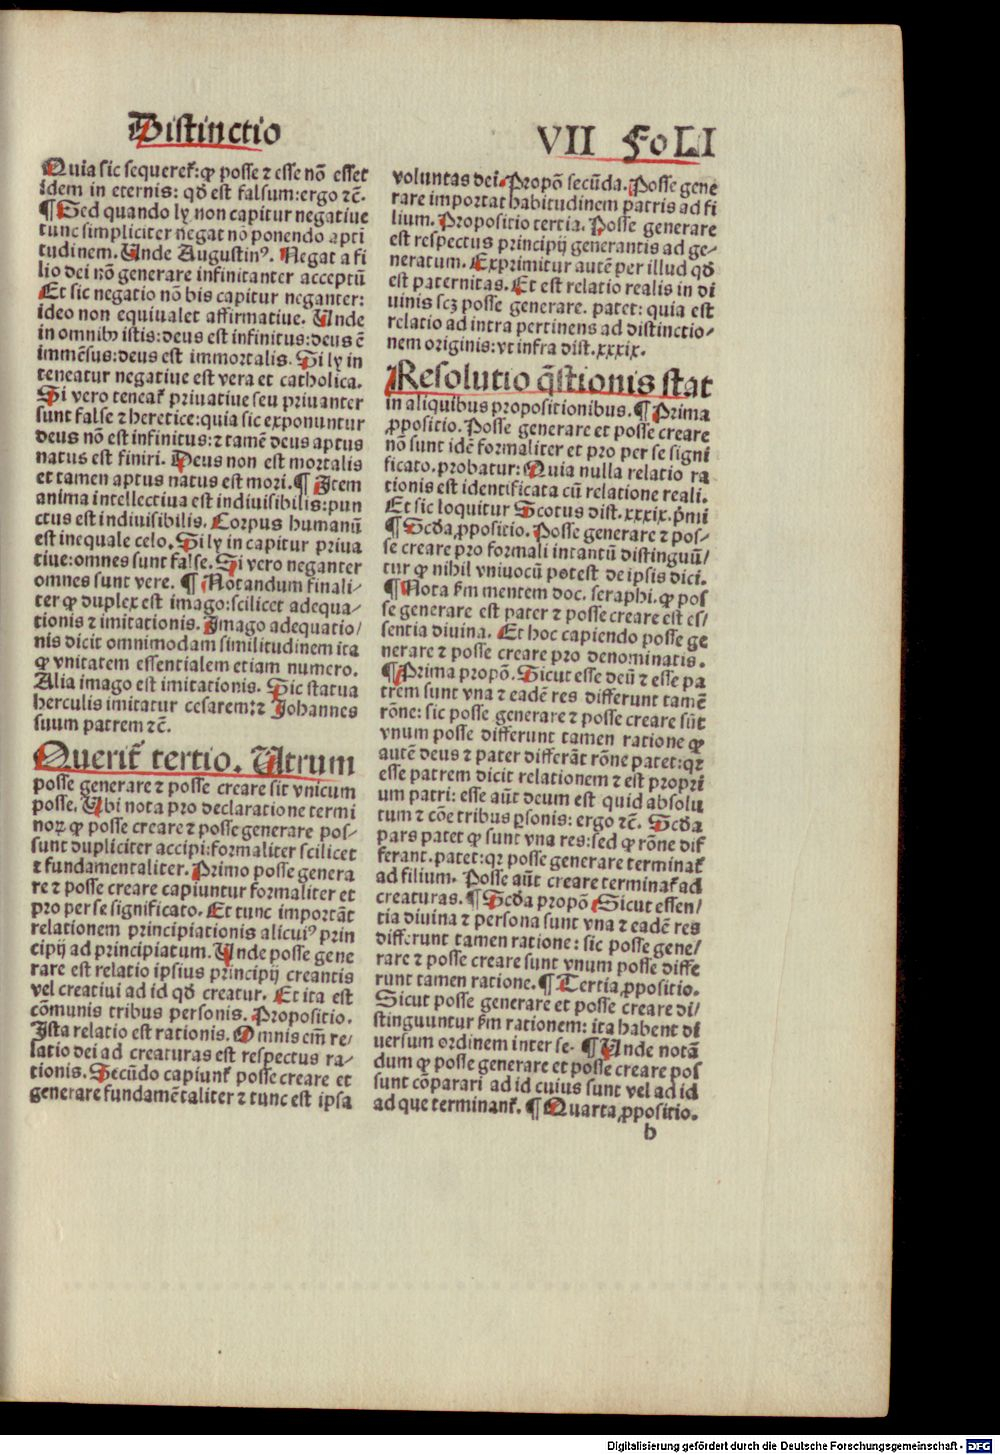 Distinctio VII FoLI
Quia sic sequeret᷑: ꝙ posse ⁊ esse nō esset
idem in eternis: qđ est falsum: ergo ⁊c̄.
¶ Sed quando ly non capitur negatiue
tunc simpliciter negat nō ponendo apti
tudinem. Unde Augustinꝰ. Negat a fi
lio dei nō generare infinitanter acceptū
Et sic negatio nō bis capitur neganter:
ideo non equiualet affirmatiue. Unde
in omnibꝫ istis: deus est infinitus: deus ē
immēsus: deus est immortalis. Si ly in
teneatur negatiue est vera et catholica.
Si vero teneat᷑ priuatiue seu priuanter
sunt false ⁊ heretice: quia sic exponuntur
deus nō est infinitus: ⁊ tamē deus aptus
natus est finiri. Deus non est mortalis
et tamen aptus natus est mori. ¶ Item
anima intellectiua est indiuisibilis: pun
ctus est indiuisibilis. Corpus humanū
est inequale celo. Si ly in capitur priua
tiue: omnes sunt false. Si vero neganter
omnes sunt vere. ¶ Notandum finali⸗
ter ꝙ duplex est imago: scilicet adequa⸗
tionis ⁊ imitationis. Imago adequatio⸗
nis dicit omnimodam similitudinem ita
ꝙ vnitatem essentialem etiam numero.
Alia imago est imitationis. Sic statua
herculis imitatur cesarem: ⁊ Johannes
suum patrem ⁊c̄.
Querit᷑ tertio. Utrum
posse generare ⁊ posse creare sit vnicum
posse. Ubi nota pro declaratione termi
noꝝ ꝙ posse creare ⁊ posse generare pos⸗
sunt dupliciter accipi: formaliter scilicet
⁊ fundamentaliter. Primo posse genera
re ⁊ posse creare capiuntur formaliter et
pro per se significato. Et tunc importāt
relationem principiationis alicuiꝰ prin
cipij ad principiatum. Unde posse gene
rare est relatio ipsius principij creantis
vel creatiui ad id qđ creatur. Et ita est
cōmunis tribus personis. Propositio.
Ista relatio est rationis. Omnis em̄ re⸗
latio dei ad creaturas est respectus ra⸗
tionis. Secūdo capiunt᷑ posse creare et
generare fundamētaliter ⁊ tunc est ipsa
voluntas dei. Propō secūda. Posse gene
rare importat habitudinem patris ad fi
lium. Propositio tertia. Posse generare
est respectus principij generantis ad ge⸗
neratum. Exprimitur autē per illud qđ
est paternitas. Et est relatio realis in di
uinis scꝫ posse generare. patet: quia est
relatio ad intra pertinens ad distinctio⸗
nem originis: vt infra dist. xxxix.
Resolutio q̄stionis stat
in aliquibus propositionibus. ¶ Prima
ꝓpositio. Posse generare et posse creare
nō sunt idē formaliter et pro per se signi
ficato. probatur: Quia nulla relatio ra
tionis est identificata cū relatione reali.
Et sic loquitur Scotus dist. xxxix. p̄mi
¶ Scđa ꝓpositio. Posse generare ⁊ pos⸗
se creare pro formali intantū distinguū⸗
tur ꝙ nihil vniuocū potest de ipsis dici.
¶ Nota ẜm mentem doc. seraphi. ꝙ pos
se generare est pater ⁊ posse creare est es⸗
sentia diuina. Et hoc capiendo posse ge
nerare ⁊ posse creare pro denominatis.
¶ Prima propō. Sicut esse deū ⁊ esse pa
trem sunt vna ⁊ eadē res differunt tamē
rōne: sic posse generare ⁊ posse creare sūt
vnum posse differunt tamen ratione ꝙ
autē deus ⁊ pater differāt rōne patet: qꝛ
esse patrem dicit relationem ⁊ est propri
um patri: esse aūt deum est quid absolu
tum ⁊ cōe tribus ꝑsonis: ergo ⁊c̄. Scđa
pars patet ꝙ sunt vna res: sed ꝙ rōne dif
ferant. patet: qꝛ posse generare terminat᷑
ad filium. Posse aūt creare terminat᷑ ad
creaturas. ¶ Scđa propō Sicut essen⸗
tia diuina ⁊ persona sunt vna ⁊ eadē res
differunt tamen ratione: sic posse gene⸗
rare ⁊ posse creare sunt vnum posse diffe
runt tamen ratione. ¶ Tertia ꝓpositio.
Sicut posse generare et posse creare di⸗
stinguuntur ẜm rationem: ita habent di
uersum ordinem inter se. ¶ Unde notā
dum ꝙ posse generare et posse creare pos
sunt cōparari ad id cuius sunt vel ad id
ad que terminant᷑. ¶ Quarta ꝓpositio.
b
Digitalisierung gefördert durch die Deutsche Forschungsgemeinschaft - DFG